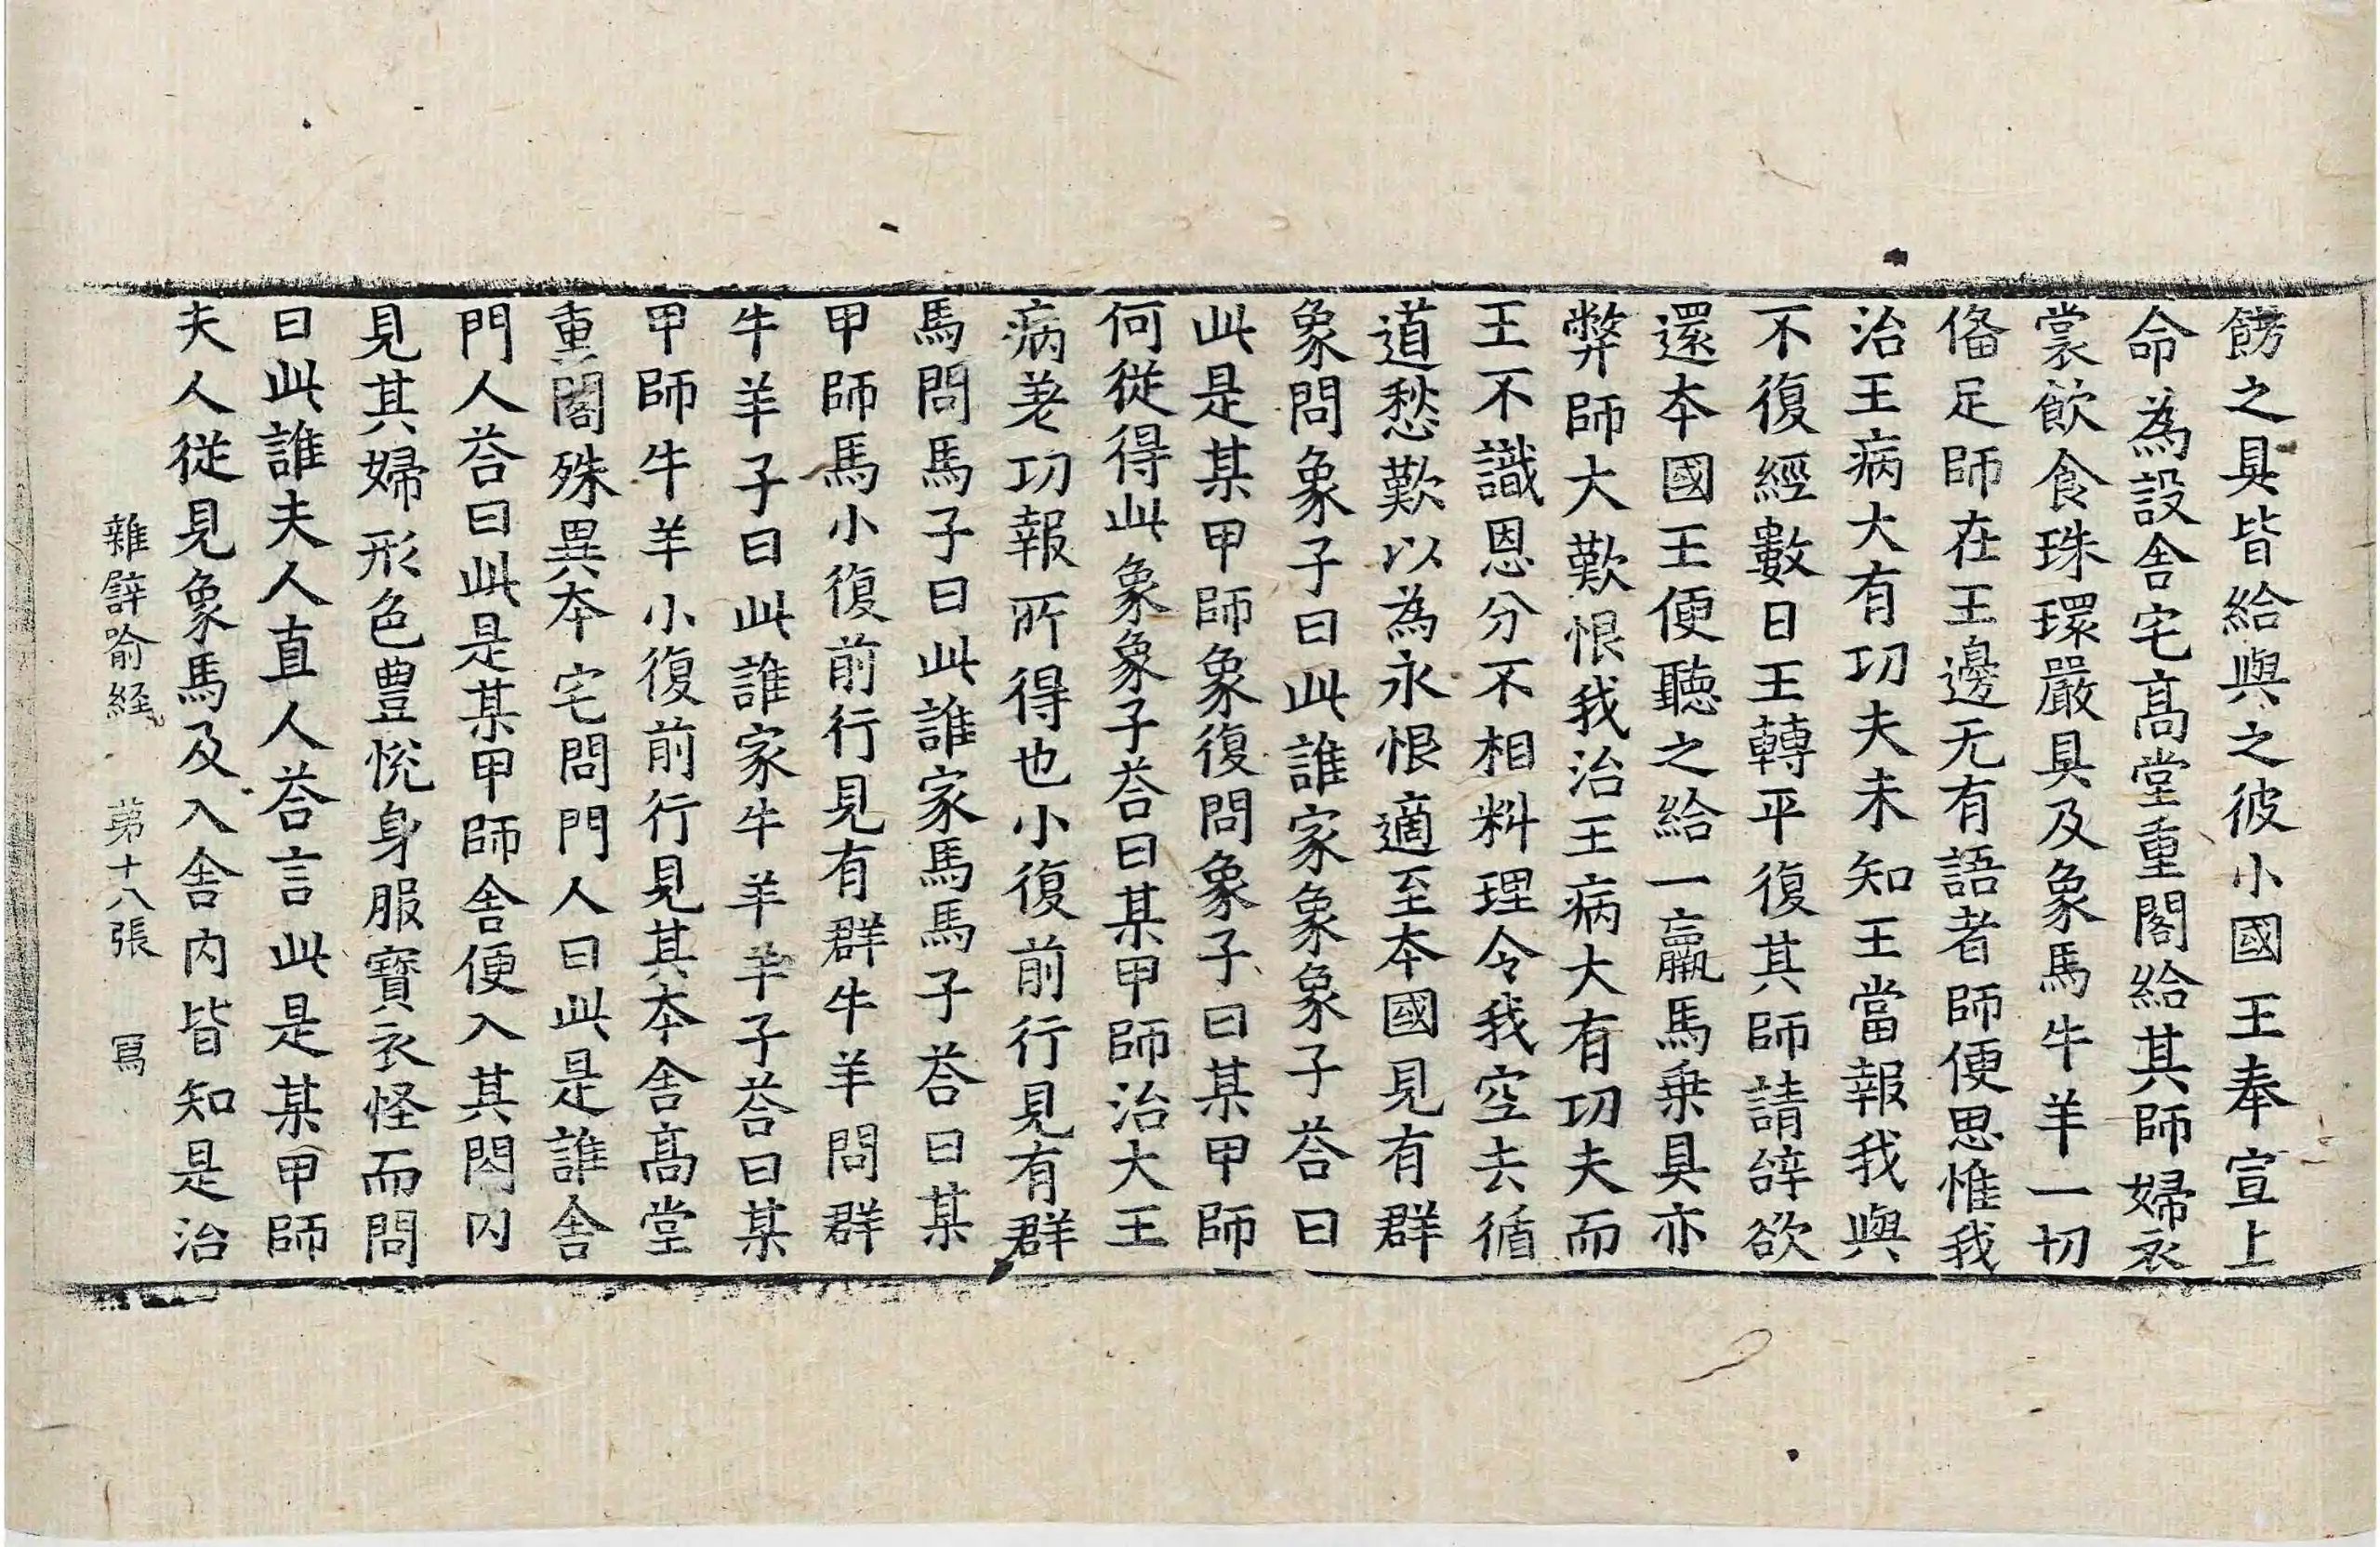 餝之具皆給與之彼小國王奉宣上
命為設舎宅髙堂重閣給其師婦衣
裳飲食珠環嚴具及象馬牛羊一切
俻足師在王邊无有語者師便思惟我
治王病大有功夫未知王當報我與
不復經數日王轉平復其師請辝欲
還本國王便聽之給一羸馬乗具亦
弊師大歎恨我治王病大有功夫而
王不識恩分不相料理令我空去循
道愁歎以為永恨適至本國見有群
象問象子曰此誰家象象子荅曰
此是某甲師象復問象子曰某甲師
何從得此象象子荅曰某甲師治大王
病差功報所得也小復前行見有群
馬問馬子曰此誰家馬馬子荅曰某
甲師馬小復前行見有群牛羊問群
牛羊子曰此誰家牛羊羊子荅曰某
甲師牛羊小復前行見其本舎髙堂
重閣殊異本宅問門人曰此是誰舎
門人荅曰此是某甲師舎便入其閤内
見其婦形色豊悅身服寶衣怪而問
曰此誰夫人直人荅言此是某甲師
夫人從見象馬及入舎内皆知是治
雜譬喻經 第十八張 寫